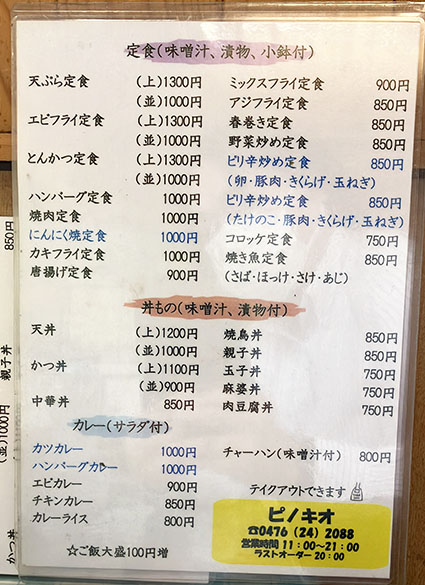 定食(味噌汁、漬物、小鉢付)
天ぷら定食 (上)1300円
(並)1000円
エビフライ定食 (上)1300円
(並)1000円
とんかつ定食 (上)1300円
(並)1000円
ハンバーグ定食 1000円
焼肉定食 1000円
にんにく焼定食 1000円
カキフライ定食 1000円
唐揚げ定食 900円
ミックスフライ定食 900円
アジフライ定食 850円
春巻き定食 850円
野菜炒め定食 850円
ピリ辛炒め定食 850円
(卵・豚肉・きくらげ・玉ねぎ)
ピリ辛炒め定食 850円
(たけのこ・豚肉・きくらげ・玉ねぎ)
コロッケ定食 750円
焼き魚定食 850円
(さば・ほっけ・さけ・あじ)
丼もの(味噌汁、漬物付)
天丼 (上)1200円
(並)1000円
かつ丼 (上)1100円
(並)900円
中華丼 850円
焼鳥丼 850円
親子丼 850円
玉子丼 750円
麻婆丼 750円
肉豆腐丼 750円
カレー(サラダ付)
カツカレー 1000円
ハンバーグカレー 1000円
エビカレー 900円
チキンカレー 850円
カレーライス 800円
☆ご飯大盛100円増
チャーハン(味噌汁付) 800円
テイクアウトできます
ピノキオ
☎0476(24)2088
営業時間 11:00~21:00
ラストオーダー 20:00
850円
親子丼
(並)1000円
かつ丼